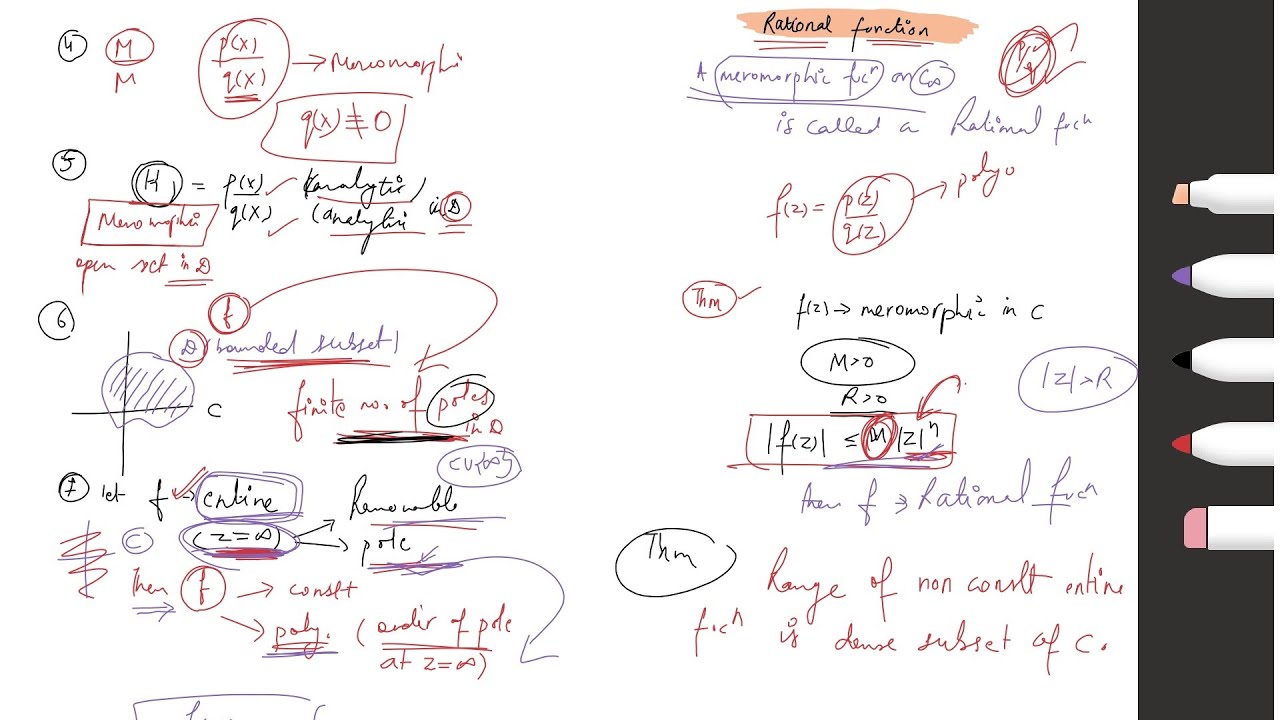 4 M p(x)/q(x) → Meromorphi
M
q(x) ≢ 0
5 H = p(x)/q(x) (analytic) (analytic in D
Meromorphi
open set in D
6 f
D (bounded subset)
C finite no. of poles in D
C∪{∞}
7 let f → entire Removable
C (z=∞) pole
Then f → constt
→ poly. (order of pole at z=∞)
Rational function
A meromorphic fucⁿ on C∞ p/q
is called a Rational fucⁿ
f(z) = p(z)/q(z) → polyo
Thm f(z) → meromorphic in C
M>0
R>0 |z|>R
|f(z)| ≤ M |z|ⁿ
then f → Rational fucⁿ
Thm Range of non constt entire
fucⁿ is dense subset of C.